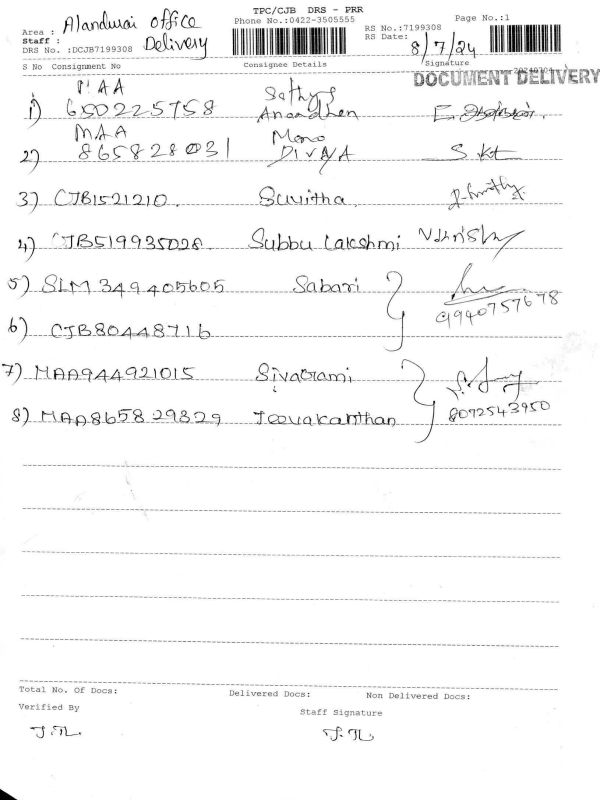 TPC/CJB DRS - PRR
Phone No.:0422-3505555
Page No.:1
Area : Alandurai office
Staff : Delivery
DRS No. :DCJB7199308
RS No.:7199308
RS Date: 8/7/24
S No Consignment No Consignee Details Signature
DOCUMENT DELIVERY
MAA Sathya
1) 650225758 Anandhan
MAA Mano
2) 865828031 DIVYA S
3) CJB1521210. Suvitha.
4) CJB519935028. Subbu Lakshmi
5) SLM 349405605 Sabari
9940757678
6) CJB80448716
7) MAA944921015 Sivagami
8) MAA865829829 Jeevakanthan 8072543950
Total No. Of Docs: Delivered Docs: Non Delivered Docs:
Verified By Staff Signature